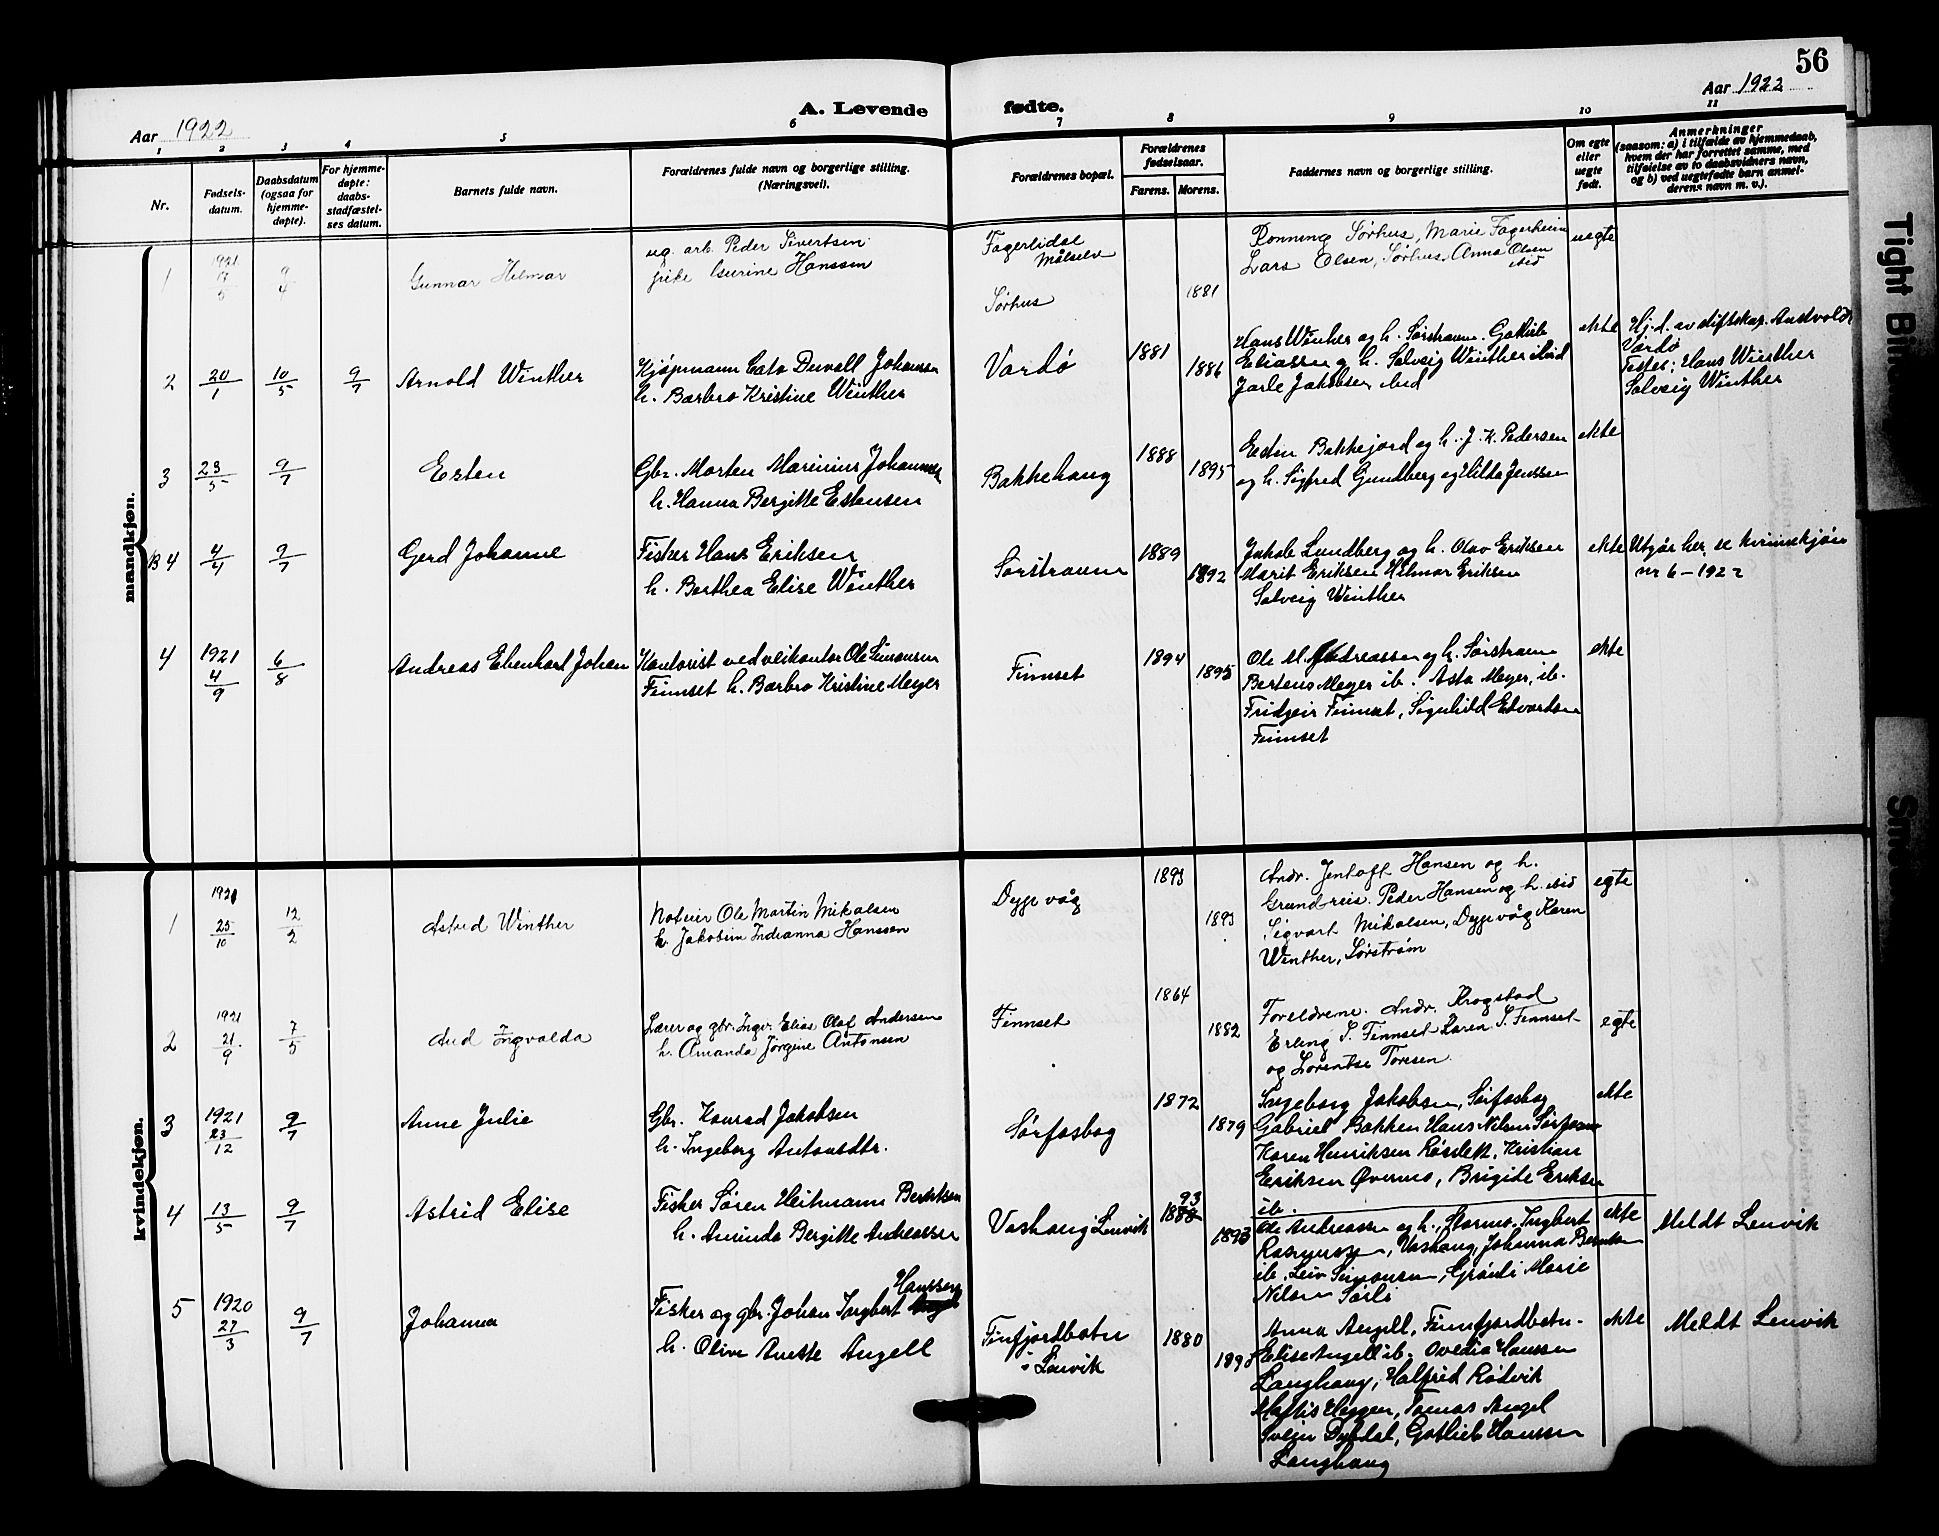 56
Aar 1922
A. Levende fødte.
Aar 1922
1 2 3 4 5 6 7 8 9 10 11
Nr.
Fødsels-
datum.
Daabsdatum
(ogsaa for
hjemme-
døpte).
For hjemme-
døpte:
daabs-
stadfæstel-
ses datum.
Barnets fulde navn.
Forældrenes fulde navn og borgerlige stilling.
(Næringsvei).
Forældrenes bopæl.
Forældrenes
fødselsaar.
Farens. Morens.
Faddernes navn og borgerlige stilling.
Om egte
eller
uegte
født.
Anmerkninger
(saasom: a) i tilfælde av hjemmedaab,
hvem der har forrettet samme, med
tilføielse av to daabsvidners navn,
og b) ved uegtefødte barn anmel-
derens navn m. v.).
mandkjøn.
1
1921
17/5
9/4
Gunnar Hilmar
ug. arb. Peder Sivertsen
pike Isurine Hanssen
Fagerlidal
Målselv
Sørhus
1881
Ronning Sørhus, Marie Fagerheim
Lars Olsen, Sørhus, Anna Olsen
ibid
uegte
2
20/1
10/5
9/7
Arnold Winther
Kjøpmann Cato Duvall Johansen
h. Barbro Kristine Winther
Vardø
1881
1886
Hans Winther og h. Sørstraum. Gotlieb
Eliassen og h. Solveig Winther ibid
Jarle Jakobsen ibid
ekte
Hj.d. av stiftskap. Austvoldt
Vardø
Testes: Hans Winther
Solveig Winther
3
23/5
9/7
Esten
Gbr. Morten Marinius Johannesen
h. Hanna Bergitte Estensen
Bakkehaug
1888
1895
Esten Bakkejord og h. J. K. Pedersen
og h. Sigfred Gundberg og Hilda Jenssen
ekte
B 4
4/4
9/7
Gerd Johanne
Fisker Hans Eriksen
h. Berthea Elise Winther
Sørstraum
1889
1892
Jakob Lundberg og h. Olav Eriksen
Marit Eriksen Hilmar Eriksen
Solveig Winther
ekte
Utgår her, se kvinnekjøn
nr 6 - 1922
4
1921
4/9
6/8
Andreas Ebenhart Johan
Kontorist ved veikontor Ole Simonsen
Finnset h. Barbro Kristine Meyer
Finnset
1894
1895
Ole M. Andreassen og h. Sørstraum
Bertens Meyer ib. Asta Meyer, ib.
Fridgeir Finnset, Signhild Edvartsen
Finnset
ekte
kvindekjøn.
1
1921
25/10
12/2
Astrid Winther
Noteier Ole Martin Mikalsen
h. Jakobine Indianna Hanssen
Dypvåg
1893
1893
Andr. Jentoft Hansen og h.
Grundreis. Peder Hansen og h. ibid
Sigvart Mikalsen, Dypvåg Karen
Winther, Sørstrøm
egte
2
1921
21/9
7/5
Aud Ingvalda
Lærer og gbr. Ingv. Elias Olaf Andersen
h. Amanda Jørgine Antonsen
Finnset
1864
1882
Foreldrene. Andr. Krogstad
Erling S. Finnset Karen S. Finnset
og Lorentse Toresen.
egte
3
1921
23/12
9/7
Anne Julie
Gbr. Konrad Jakobsen
h. Ingeborg Antonsdtr.
Sørfosbog
1872
1879
Ingeborg Jakobsen, Sørfosbog
Gabriel Bakken Hans Nilsen
Karen Henriksen Røslett, Kristian
Eriksen Øvermo, Brigide Eriksen
ib.
ekte
4
13/5
9/7
Astrid Elise
Fisker Søren Heitmann Berntsen
h. Aminda Bergitte Andreassen
Vashaug Lenvik
93
1888
1893
Ole Andreassen og h., Stormo, Ingbert
Rasmussen, Vashaug, Johanna Berntsen
ib. Leiv Simonsen, Grønli Marie
Nilsen Sørli
ekte
Meldt Lenvik
5
1920
27/3
9/7
Johanna
Hanssen
Fisker og gbr. Johan Ingbert
h. Olive Aneste Angell
Finfjordbotn
i Lenvik
1880
Anna Angell, Finnfjordbotn.
Elise Angell ib. Ovedia Hanssen
Langhaug, Halfrid Rødvik
Mathis Heggen, Tomas Angel
Svein Dybdal, Gotlieb Hanssen
Langhaug
ekte
Meldt Lenvik
Tight